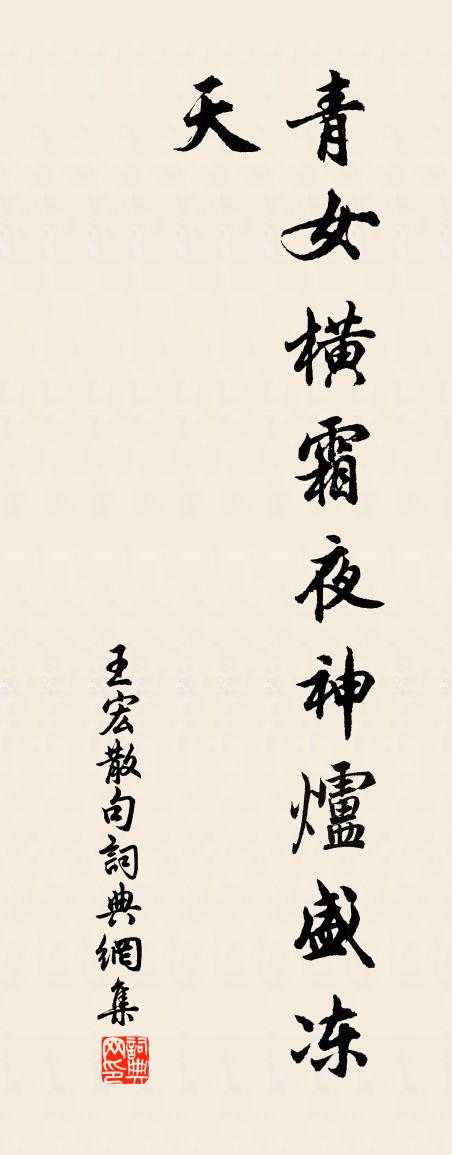 青女橫霜夜神爐盛冻
天
王宏散句詞典網集
詞典网印